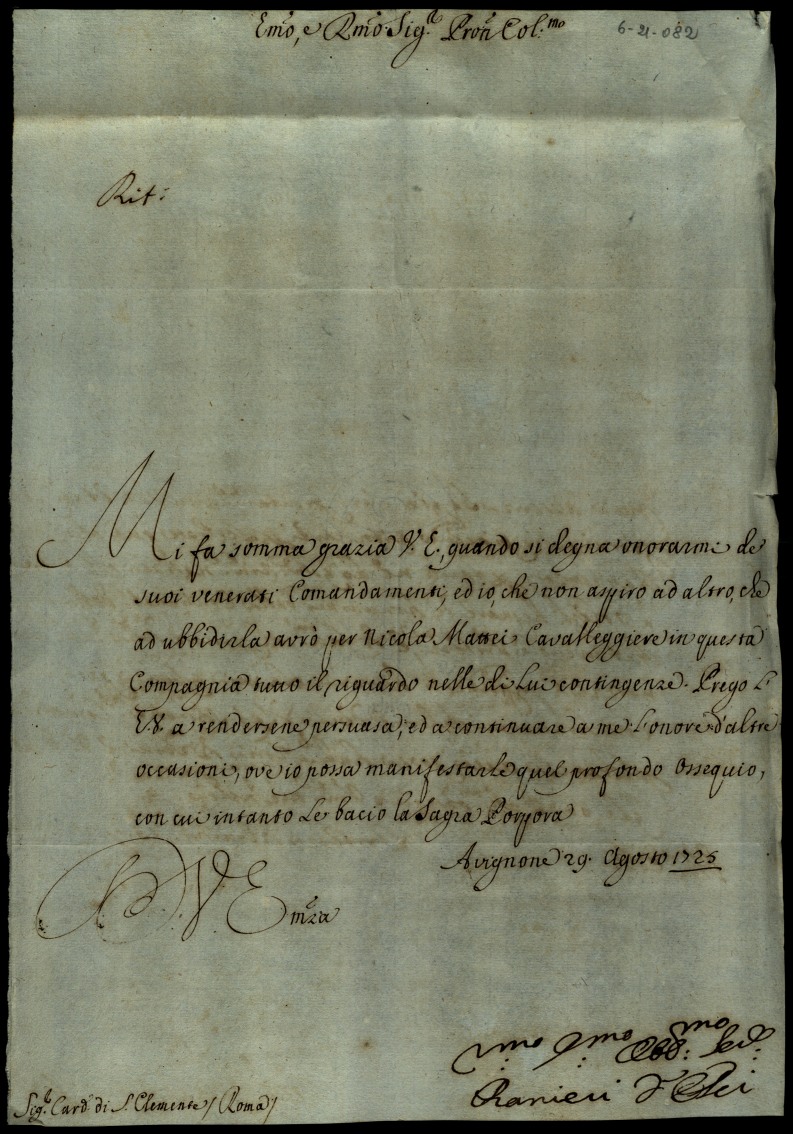 Emo, e Rmo Sig.r Pron Col:mo
6-21-082
Rit:
Mi fa somma grazia V. E., quando si degna onorarmi de
suoi venerati Comandamenti, ed io, che non aspiro ad altro, che
ad ubbidirla avrò per Nicola Mattei Cavalleggiere in questa
Compagnia tutto il riguardo nelle di Lui contingenze. Prego L'
E.V. a rendersene persuasa, ed a continuare a me l'onore d'altre
occasioni, ove io possa manifestarle quel profondo Ossequio,
con cui intanto Le bacio la Sagra Porpora
Avignone 29. Agosto 1725
D. V. Emza
Sig.r Card. di S. Clemente / Roma /
Obb:mo Ser.
Ranieri d'Elci